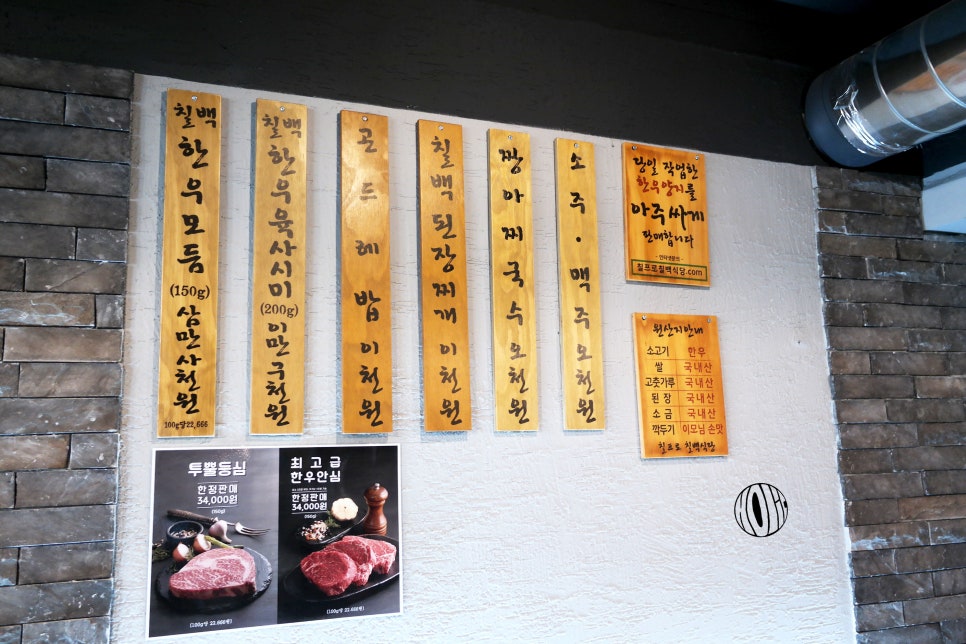 칠백 한우모듬 (150g) 삼만사천원
100g당 22,666
칠백 한우육사시미 (200g) 이만구천원
곤드레밥 이천원
칠백된장찌개 이천원
짱아찌국수 오천원
소주·맥주 오천원
당일 작업한
한우양지를
아주 싸게
판매합니다
칠프로칠백식당.com
원산지안내
소고기 한우
쌀 국내산
고춧가루 국내산
된장 국내산
소금 국내산
깍두기 이모님 손맛
칠프로 칠백식당
투뿔등심
한정판매
34,000원
(150g)
(100g당 22,666원)
최고급
한우안심
한정판매
34,000원
(150g)
(100g당 22,666원)